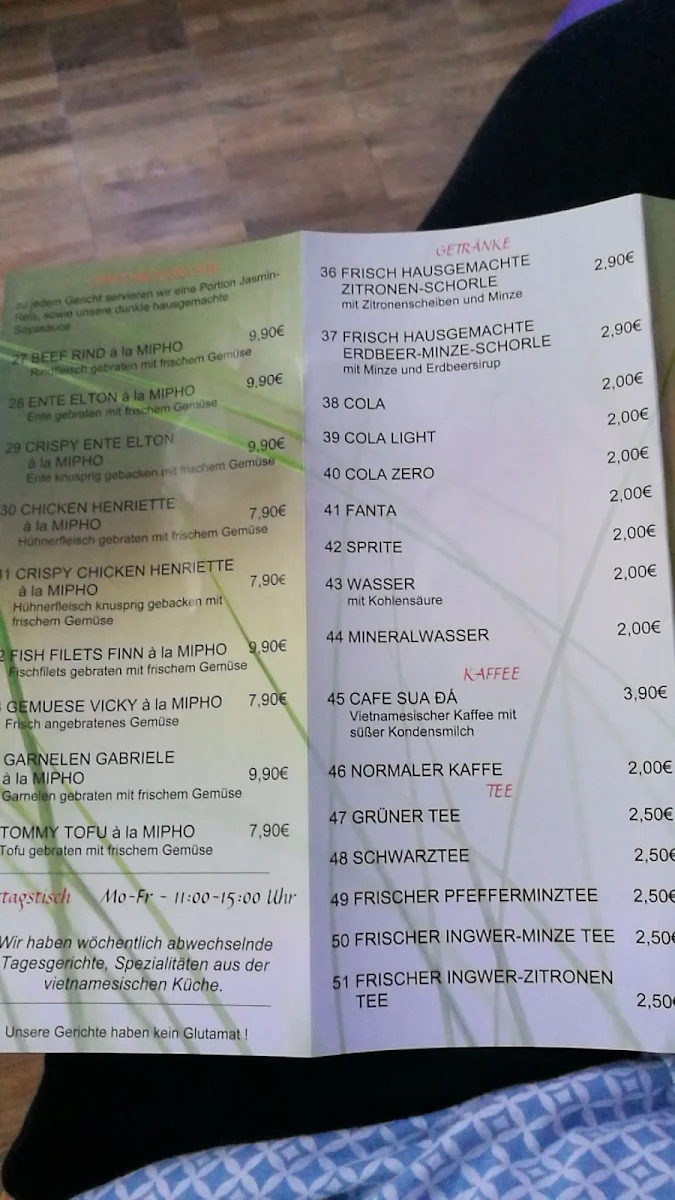 zu jedem Gericht servieren wir eine Portion Jasmin-
Reis, sowie unsere dunkle hausgemachte
Soyasauce
27 BEEF RIND à la MIPHO 9,90€
Rindfleisch gebraten mit frischem Gemüse
28 ENTE ELTON à la MIPHO 9,90€
Ente gebraten mit frischem Gemüse
29 CRISPY ENTE ELTON
à la MIPHO 9,90€
Ente knusprig gebacken mit frischem Gemüse
30 CHICKEN HENRIETTE
à la MIPHO 7,90€
Hühnerfleisch gebraten mit frischem Gemüse
1 CRISPY CHICKEN HENRIETTE
à la MIPHO 7,90€
Hühnerfleisch knusprig gebacken mit
frischem Gemüse
2 FISH FILETS FINN à la MIPHO 9,90€
Fischfilets gebraten mit frischem Gemüse
GEMUESE VICKY à la MIPHO 7,90€
Frisch angebratenes Gemüse
GARNELEN GABRIELE
à la MIPHO 9,90€
Garnelen gebraten mit frischem Gemüse
TOMMY TOFU à la MIPHO 7,90€
Tofu gebraten mit frischem Gemüse
tagstisch Mo-Fr - 11:00-15:00 Uhr
Wir haben wöchentlich abwechselnde
Tagesgerichte, Spezialitäten aus der
vietnamesischen Küche.
Unsere Gerichte haben kein Glutamat !
GETRÄNKE
36 FRISCH HAUSGEMACHTE 2,90€
ZITRONEN-SCHORLE
mit Zitronenscheiben und Minze
37 FRISCH HAUSGEMACHTE 2,90€
ERDBEER-MINZE-SCHORLE
mit Minze und Erdbeersirup
38 COLA 2,00€
39 COLA LIGHT 2,00€
40 COLA ZERO 2,00€
41 FANTA 2,00€
42 SPRITE 2,00€
43 WASSER 2,00€
mit Kohlensäure
44 MINERALWASSER 2,00€
KAFFEE
45 CAFE SUA ĐÁ 3,90€
Vietnamesischer Kaffee mit
süßer Kondensmilch
46 NORMALER KAFFE 2,00€
TEE
47 GRÜNER TEE 2,50€
48 SCHWARZTEE 2,50€
49 FRISCHER PFEFFERMINZTEE 2,50€
50 FRISCHER INGWER-MINZE TEE 2,50€
51 FRISCHER INGWER-ZITRONEN
TEE 2,50€